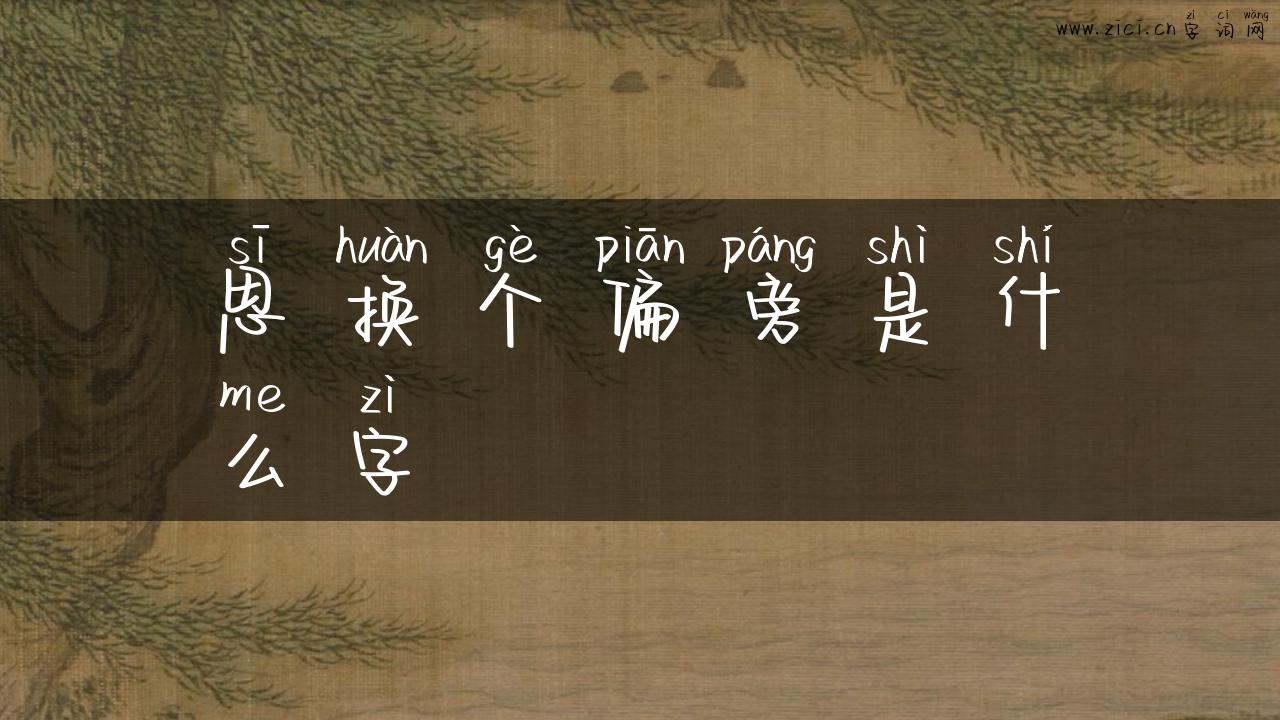 www.zici.cn zì cí wǎng
字词网
sī huàn gè piān páng shì shí
思换个偏旁是什
me zì
么字